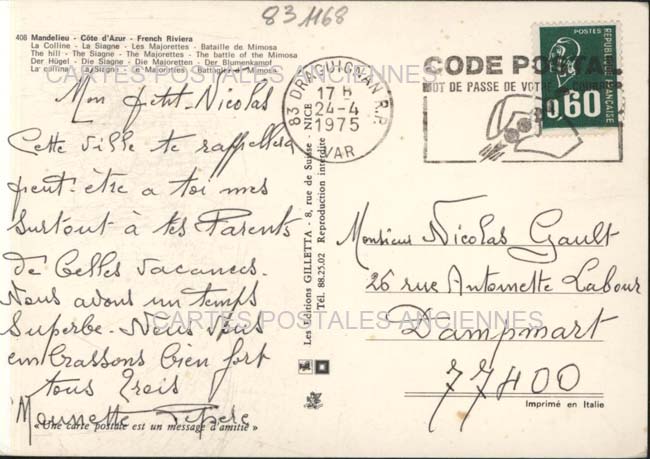 83 1168
408 Mandelieu - Côte d'Azur - French Riviera
La Colline - La Siagne - Les Majorettes - Bataille de Mimosa
The hill - The Siagne - The Majorettes - The battle of the Mimosa
Der Hügel - Die Siagne - Die Majoretten - Der Blumenkampf
La collina - La Siagne - Le Majorettes - Battaglia di Mimosa
CARTES POSTALES ANCIENNES
Mon petit Nicolas
Cette ville te rappellera
peut-être a toi mes
surtout à tes Parents
de belles vacances.
Nous avons un temps
superbe. Nous vous
embrassons bien fort
tous trois
Mounette
« Une carte postale est un message d'amitié »
83 DRAGUIGNAN R.P.
17 H
24-4
1975
VAR
CODE POSTAL
MOT DE PASSE DE VOTRE COURRIER
POSTES
0,60
REPUBLIQUE FRANÇAISE
Les Editions GILLETTA - 8, rue de Suisse - NICE
Tél. 88.25.02 Reproduction interdite
Monsieur Nicolas Gault
26 rue Antoinette Labour
Dampmart
77400
CARTES POSTALES ANCIENNES
Imprimé en Italie